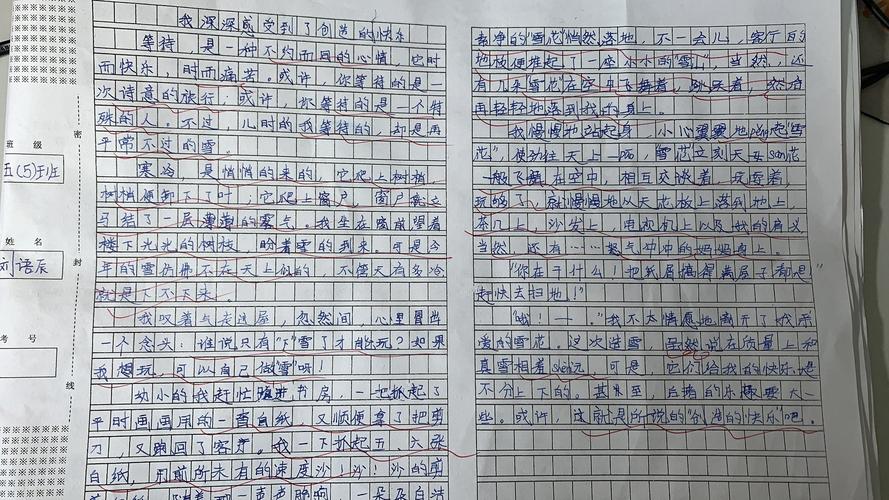 班 级
五(5)班
姓 名
刘语辰
考 号
密
封
线
我深深感受到了创造的快乐
等待，是一种不约而同的心情，它时
而快乐，时而痛苦。或许，你等待的是一
次诗意的旅行；或许，你等待的是一个特
殊的人。不过，儿时的我等待的，却是再
平常不过的雪。
寒冷，是悄悄的来的，它爬上树梢，
树梢便卸下了叶；它爬上窗户，窗户就立
马结了一层薄薄的雾气。我坐在窗前望着
楼下光光的树枝，盼着雪的到来，可是今
年的雪仿佛不在天上似的，不管天有多冷
就是下不下来。
我叹着气走进屋，忽然间，心里冒出
一个念头：谁说只有"下"雪了才能玩？如果
我想玩，可以自己"做"雪"呀！
幼小的我赶忙跑进书房，一把抓起了
平时画画用的一沓白纸，又顺便拿了把剪
刀，又跑回了客厅。我一下抓起五、六张
白纸，用前所未有的速度沙！沙！沙的剪
一声声脆响，一朵朵白洁
素净的"雪花"悄然落地，不一会儿，客厅的
地板便堆起了一座小小的"雪"山，当然，还
有几朵"雪花"在空中飞舞着，跳跃着，然后
再轻轻地落到我的身上。
我慢慢地站起身，小心翼翼地pěng起"雪
花"，使劲往天上一pāo，"雪花"立刻天女sàn花
一般飞舞在空中，相互交谈着，玩耍着，
玩够了，就慢慢地从天花板上落到地上，
茶几上，沙发上，电视机上以及我的肩
当然，还有……怒气冲冲的妈妈身上。
"你在干什么！把纸屑搞得满屋子都是"
赶快去扫地！"
"哦！一。"我不太情愿地离开了我
爱的雪花。这次造雪，虽然说在质量上和
真雪相差shèn远，可是，它们给我的快乐是
不分上下的。甚至，自造的乐趣要大一
些。或许，这就是所说的"创造的快乐"吧。